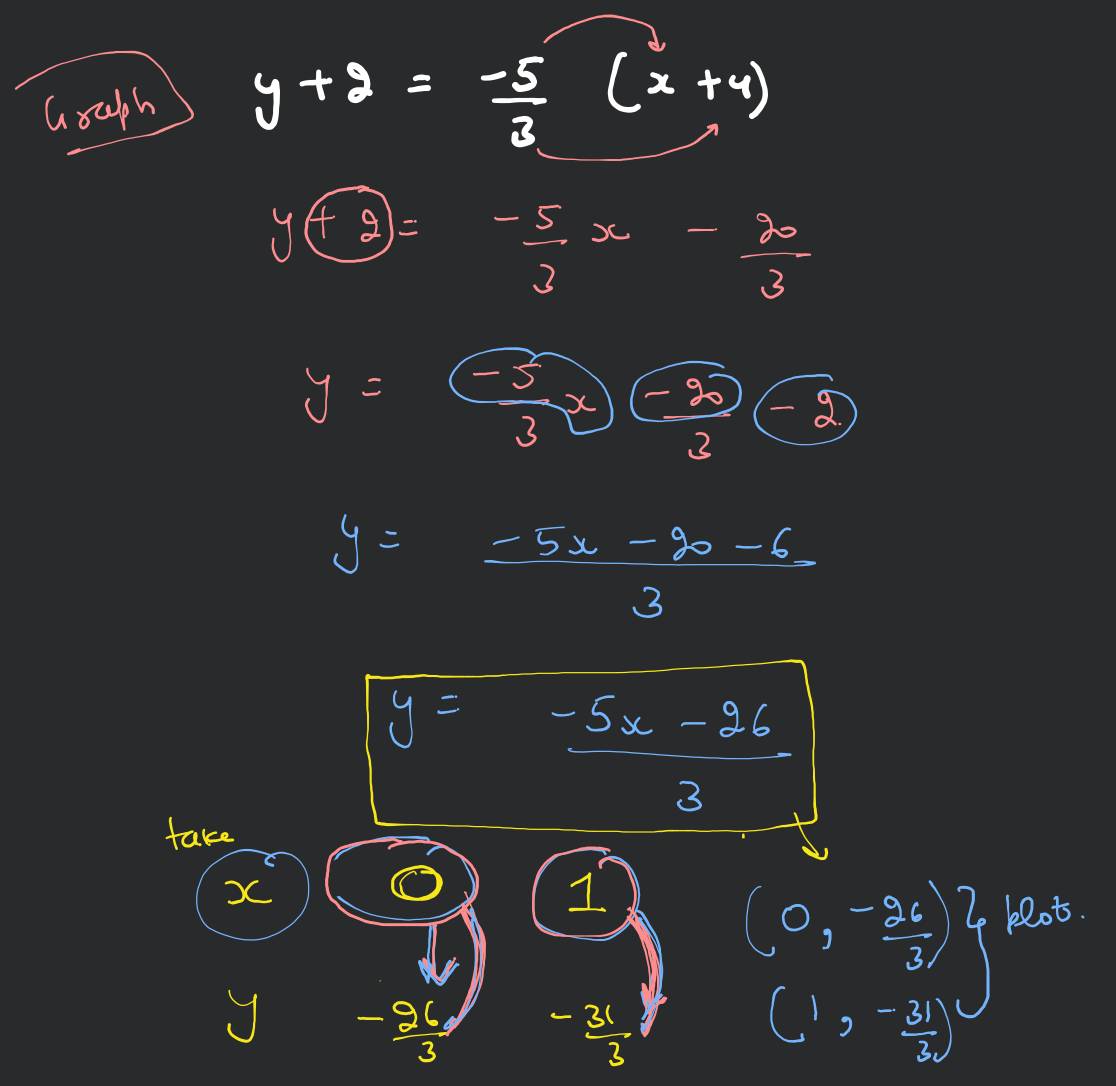 Graph
y + 2 = -5/3 (x + 4)
y + 2 = -5/3 x - 20/3
y = -5/3 x - 20/3 - 2
y = (-5x - 20 - 6)/3
y = (-5x - 26)/3
take
x 0 1
y -26/3 -31/3
(0, -26/3)
(1, -31/3)
plots.